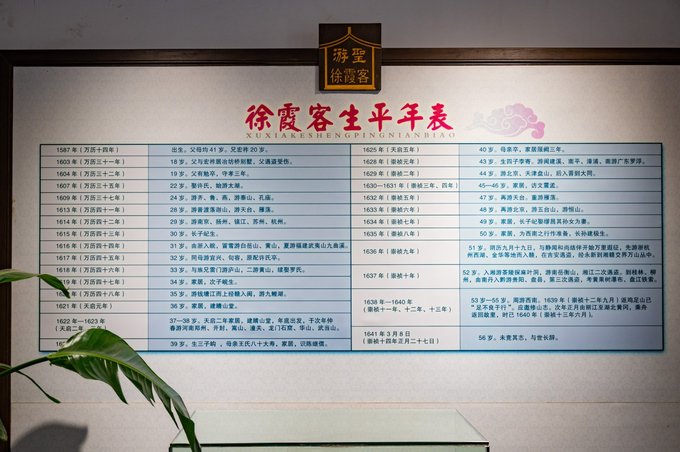 游聖
徐霞客
徐霞客生平年表
XUXIAKESHENGPINGNIANBIAO
1587 年（万历十四年） 出生。父母均 41 岁。兄宏祚 20 岁。
1603 年（万历三十一年） 18 岁。父与宏祚居冶坊桥别墅，父遇盗受伤。
1604 年（万历三十二年） 19 岁。父有勉卒，守孝三年。
1607 年（万历三十五年） 22 岁。娶许氏，始游太湖。
1609 年（万历三十七年） 24 岁。游齐、鲁、燕，游泰山、孔庙。
1613 年（万历四十一年） 28 岁。游普渡落迦山，游天台、雁荡。
1614 年（万历四十二年） 29 岁。游南京、扬州、镇江、苏州、杭州。
1615 年（万历四十三年） 30 岁。长子屺生。
1616 年（万历四十四年） 31 岁。由浙入皖，冒雪游白岳山、黄山，夏游福建武夷山九曲溪。
1617 年（万历四十五年） 32 岁。同母游宜兴、句容，原配许氏卒。
1618 年（万历四十六年） 33 岁。与族兄雷门游庐山，二游黄山，续娶罗氏。
1619 年（万历四十七年） 34 岁。家居，次子岘生。
1620 年（万历四十八年） 35 岁。游钱塘江而上经赣入闽，游九鲤湖。
1621 年（天启元年） 36 岁。家居，建晴山堂。
1622 年—1623 年
（天启二年、三年） 37—38 岁。天启二年家居，建晴山堂，年底出发，于次年仲
春游河南郑州、开封、嵩山、潼关、龙门石窟、华山、武当山。
39 岁。生三子岣，母亲王氏八十大寿，家居，识陈继儒。
1625 年（天启五年） 40 岁。母亲卒，家居服阙三年。
1628 年（崇祯元年） 43 岁。生四子李寄，游闽建溪、南平、漳浦、南游广东罗浮。
1629 年（崇祯二年） 44 岁。游北京、天津盘山，后入晋到大同。
1630—1631 年（崇祯三年、四年） 45—46 岁。家居，访文震孟。
1632 年（崇祯五年） 47 岁。再游天台，重游雁荡。
1633 年（崇祯六年） 48 岁。再游北京，游五台山，游恒山。
1634 年（崇祯七年） 49 岁。家居，长子屺娶缪昌其孙女为妻。
1635 年（崇祯八年） 50 岁。家居，为西南之行作准备，长孙建极生。
1636 年（崇祯九年） 51 岁。阴历九月十九日，与静闻和尚结伴开始万里遐征，先游浙杭
州西湖、金华等地而入赣，在吉安遇盗，经永新到湘赣交界万山丛中。
1637 年（崇祯十年） 52 岁。入湘游茶陵探麻叶洞，游南岳衡山，湘江二次遇盗。到桂林、柳
州，由南丹入黔游贵阳、盘县，第三次遇盗，考黄果树瀑布、盘江铁索。
1638 年—1640 年
（崇祯十一年、十二年、十三年） 53 岁—55 岁。周游西南，1639 年（崇祯十二年九月）返鸡足山已
“足不良于行”。应邀修山志，次年正月由丽江至湖北黄冈，乘舟
返回故里，时已 1640 年（崇祯十三年六月）。
1641 年 3 月 8 日
（崇祯十四年正月二十七日） 56 岁。未竟其志，与世长辞。